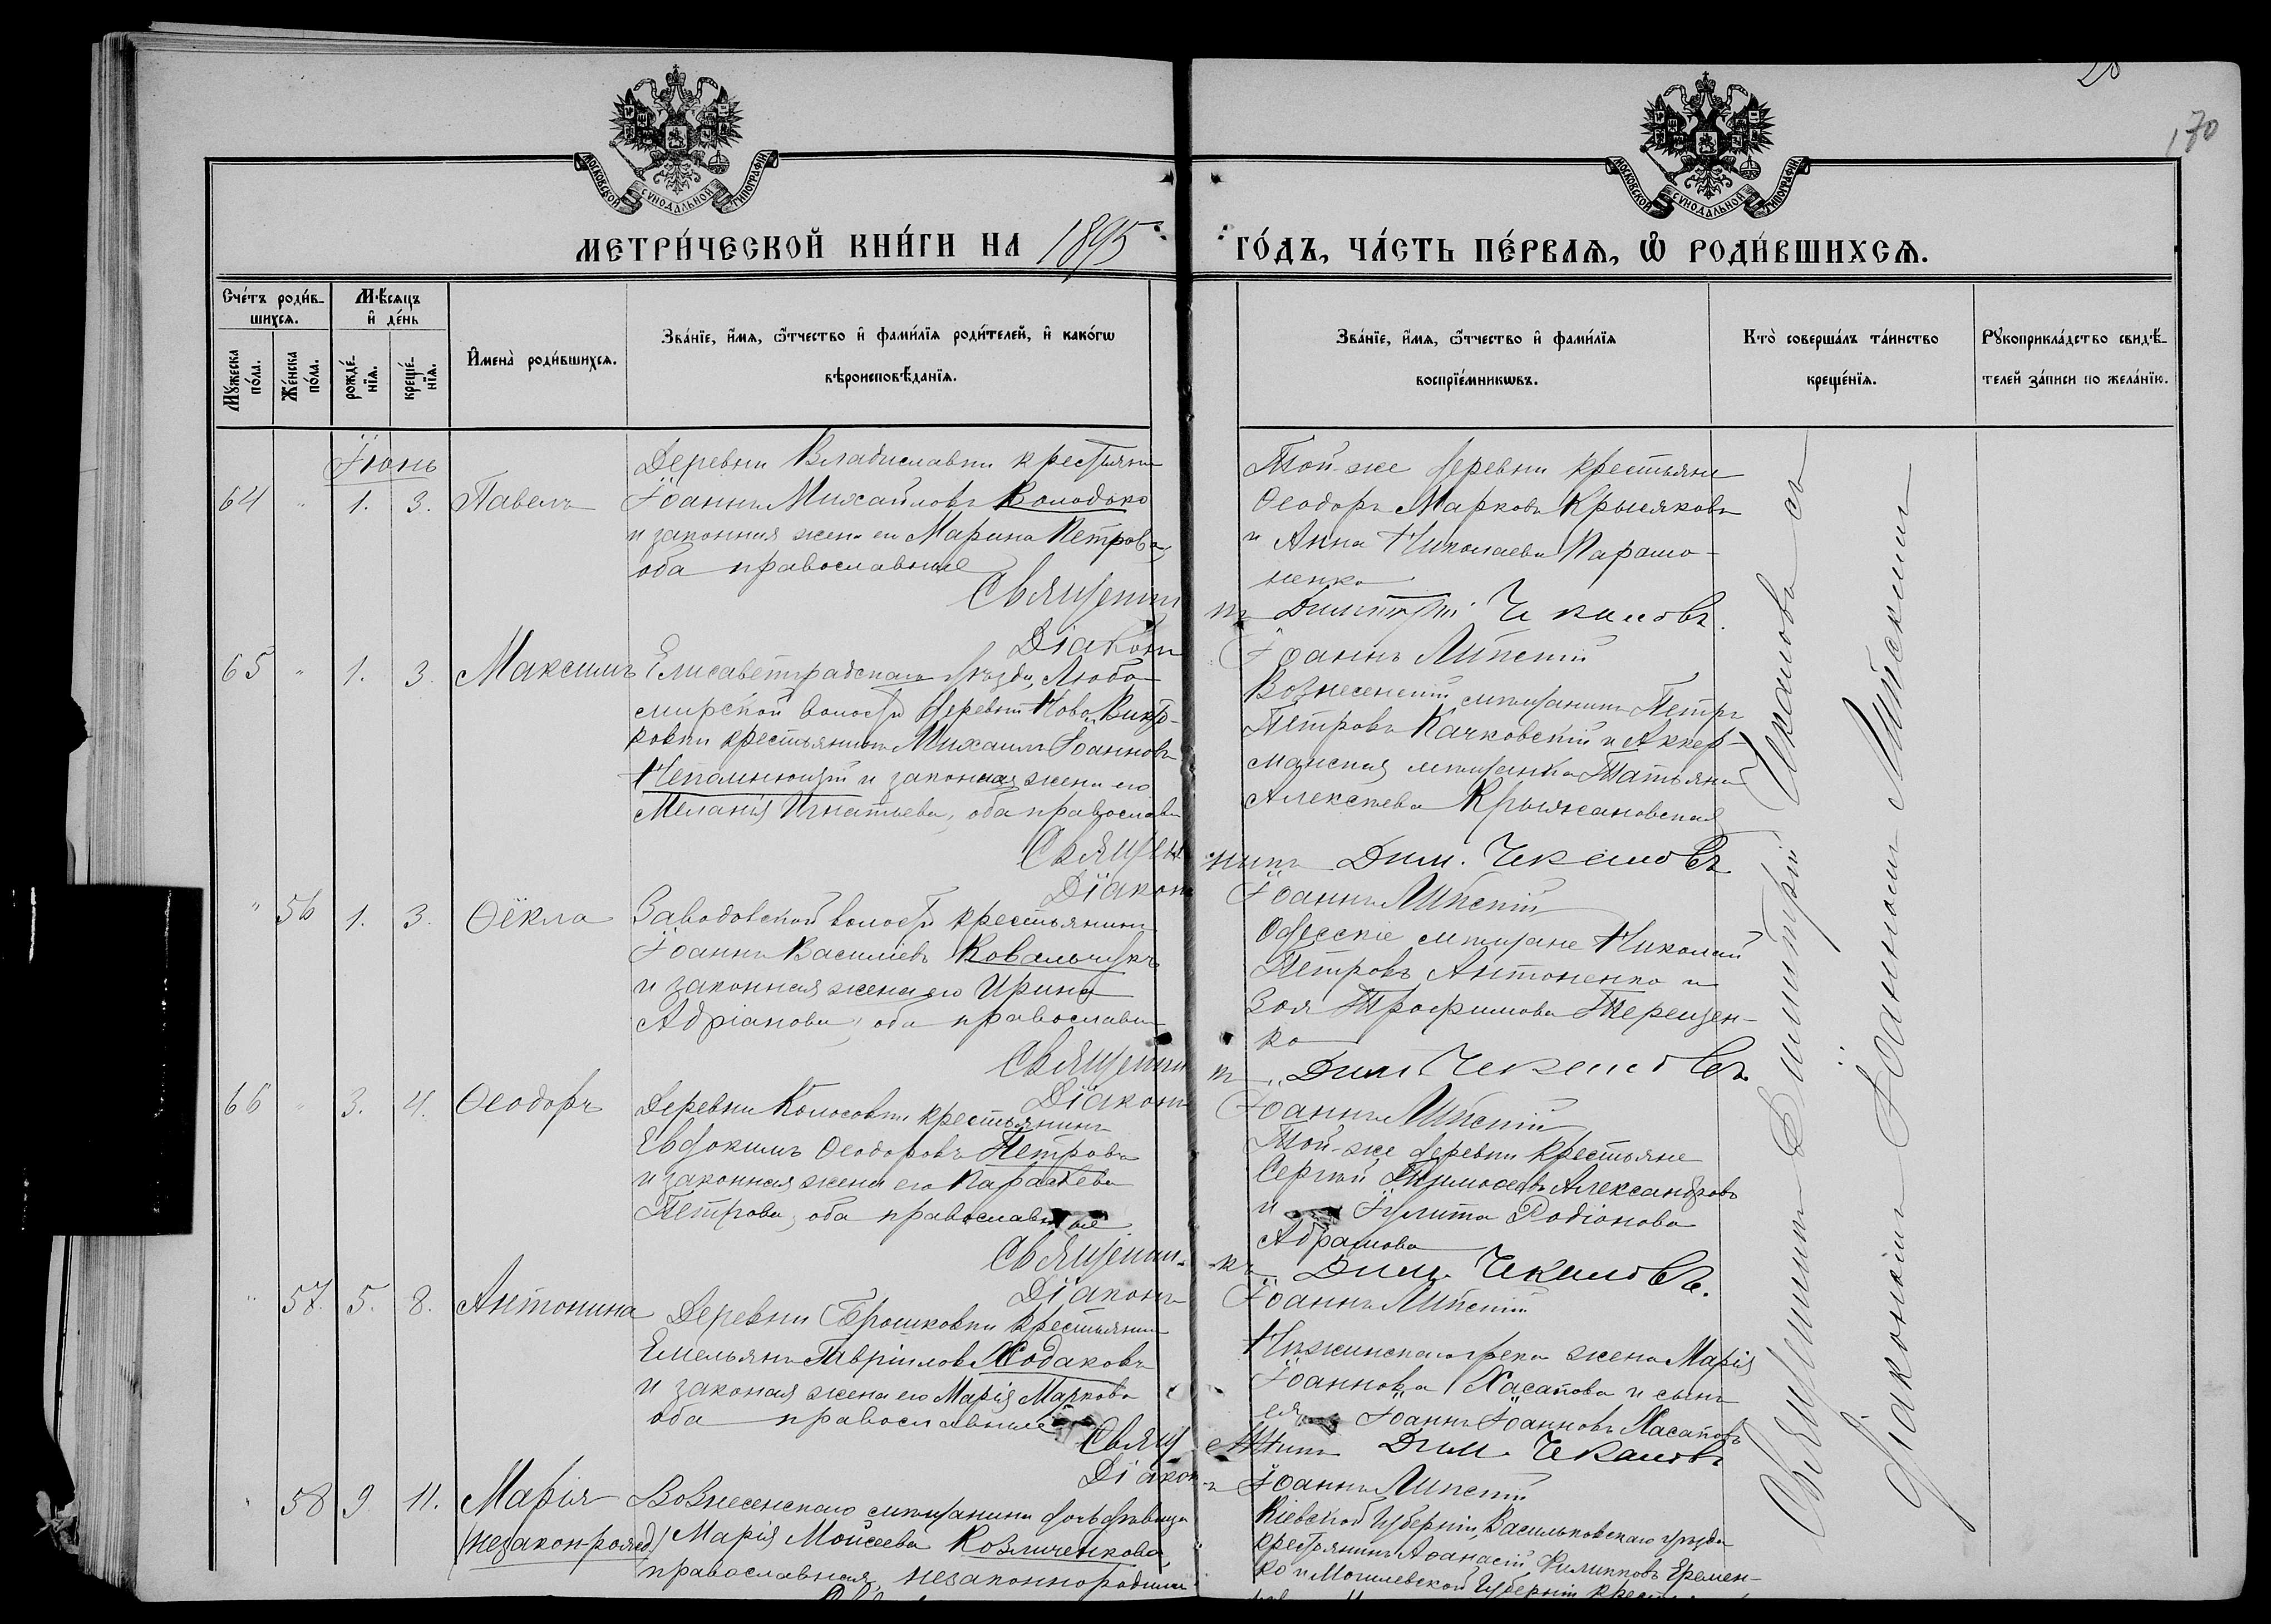 28
170
МОСКОВСКОЙ СѴНОДАЛЬНОЙ ТИПОГРАФІИ
МОСКОВСКОЙ СѴНОДАЛЬНОЙ ТИПОГРАФІИ
МЕТРИ́ЧЕСКОЙ КНИ́ГИ НА 1895
ГО́ДЪ, ЧА́СТЬ ПЕ́РВАѦ, Ѡ҆ РОДИ́ВШИХСѦ.
Сче́тъ роди́в-
шихсѧ.
Мꙋ́жеска по́ла.
Же́нска по́ла.
Мѣ́сѧцъ
и҆ де́нь
рожде́-
нїѧ.
креще́-
нїѧ.
И҆мена̀ роди́вшихсѧ.
Зва́нїе, и҆́мѧ, ѻ҆́тчество и҆ фами́лїѧ роди́телей, и҆ како́гѡ
вѣроисповѣ́данїѧ.
Зва́нїе, и҆́мѧ, ѻ҆́тчество и҆ фами́лїѧ
воспрїе́мникѡвъ.
Кто̀ соверша́лъ та́инство
креще́нїѧ.
Рꙋкоприкла́дство свидѣ́-
телей за́писи по жела́нїю.
Іюнь
64 " 1. 3. Павелъ
Деревни Владиславки крестьянинъ
Іоаннъ Михаиловъ Колодько
и законная жена его Марина Петрова,
оба православные
Той-же деревни крестьяне
Ѳеодоръ Марковъ
и Анна Николаева Парамо-
ненко
Священникъ Димитрій Чекаловъ.
Діаконъ Іоаннъ Липскій
65 " 1. 3. Максимъ
Елисаветградскаго уѣзда, Любо-
мирской волости деревни Ново-Викто-
ровки крестьянинъ Михаилъ Іоанновъ
Непомнющій и законная жена его
Меланія Игнатьева, оба православн
Вознесенскій мѣщанинъ Петръ
Петровъ Качковскій и Аккер-
манская мѣщанка Татьяна
Алексѣева Крыжановская
Священникъ Дим. Чекаловъ
Діаконъ Іоаннъ Липскій
" 56 1. 3. Ѳёкла
Заводовской волости крестьянинъ
Іоаннъ Василіевъ Ковальчукъ
и законная жена его Ирина
Адріанова, оба православн
Одесскіе мѣщане Николай
Петровъ Антоненко и
Зоя Трофимова Терещен-
ко
Священникъ Дим. Чекаловъ
Діаконъ Іоаннъ Липскій
66 " 3. 4. Ѳеодоръ
Деревни Колосовки крестьянинъ
Евдокимъ Ѳеодоровъ Петровъ
и законная жена его Параскева
Петрова, оба православные
Той-же деревни крестьяне
Сергѣй Тимоѳеевъ Александровъ
и Іулита Родіонова
Абрамова
Священникъ Дим. Чекаловъ.
Діаконъ Іоаннъ Липскій
" 57. 5. 8. Антонина
Деревни Ѣрошковки крестьянинъ
Емельянъ Гавріиловъ Ходаковъ
и законая жена его Марія Маркова
оба православные
Нѣжинскаго грека жена Марія
Іоаннова Хасапова и сынъ
ея Іоаннъ Іоанновъ Хасаповъ
Священникъ Дим. Чекаловъ
Діаконъ Іоаннъ Липскій
" 58 9 11. Марія
(незакон-рожд)
Вознесенскаго мѣщанина дочь дѣвица
Марія Моисеева Козличенкова,
православная, незаконнорожден
Кіевской губерніи, Васильковскаго уѣзда
крестьянинъ Аѳанасій Филипповъ Еремен-
ко и Могилевской губерніи крест
Священникъ Димитрій Чекаловъ съ
Діакономъ Іоанномъ Липскимъ